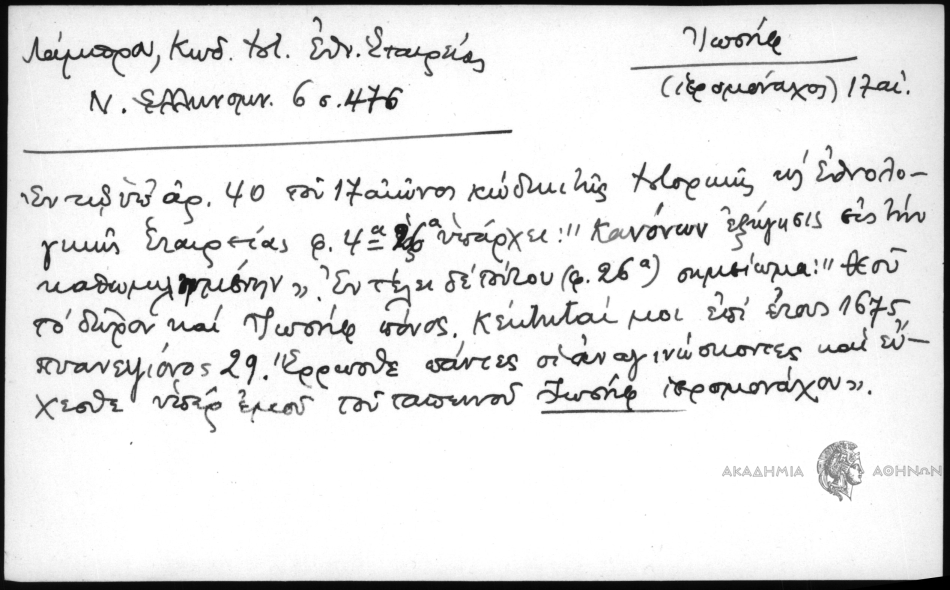 Λάμπρου, Κωδ. Ιστ. Εθν. Εταιρείας
Ν. Ελληνομν. 6 σ. 476
Ἰωσήφ
(ἱερομόναχος) 17 αἰ.
Ἐν τῷ ὑπ' ἀρ. 40 τοῦ 17 αἰῶνος κώδικι τῆς Ἱστορικῆς κ' Ἐθνολο-
γικῆς Ἑταιρείας φ. 4α ὑπάρχει: "Κανόνων ἐξήγησις εἰς τὴν
καθωμιλημένην». Ἐν τέλει δὲ τούτου (φ. 26α) σημείωμα: "Θεοῦ
τὸ δῶρον καὶ Ἰωσὴφ πόνος. Κέκτηταί μοι ἐπὶ ἔτους 1675
πυανεψιόνος 29. Ἔρρωσθε πάντες οἱ ἀναγινώσκοντες καὶ εὔ-
χεσθε ὑπὲρ ἐμοῦ τοῦ ταπεινοῦ Ἰωσὴφ ἱερομονάχου».
ΑΚΑΔΗΜΙΑ ΑΘΗΝΩΝ